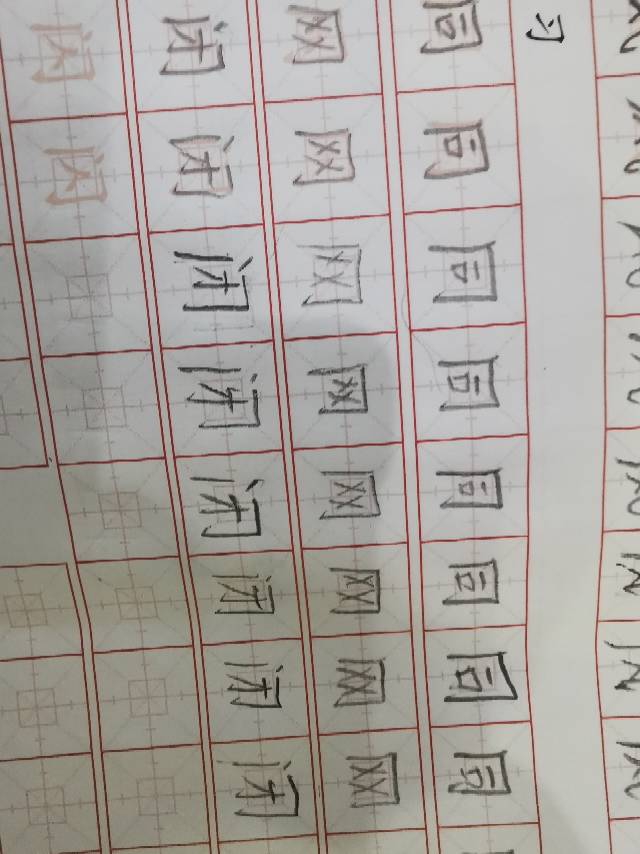 习
同同同同同同同同
网网网网网网网网
闭闭闭闭闭闭闭闭
闪闪